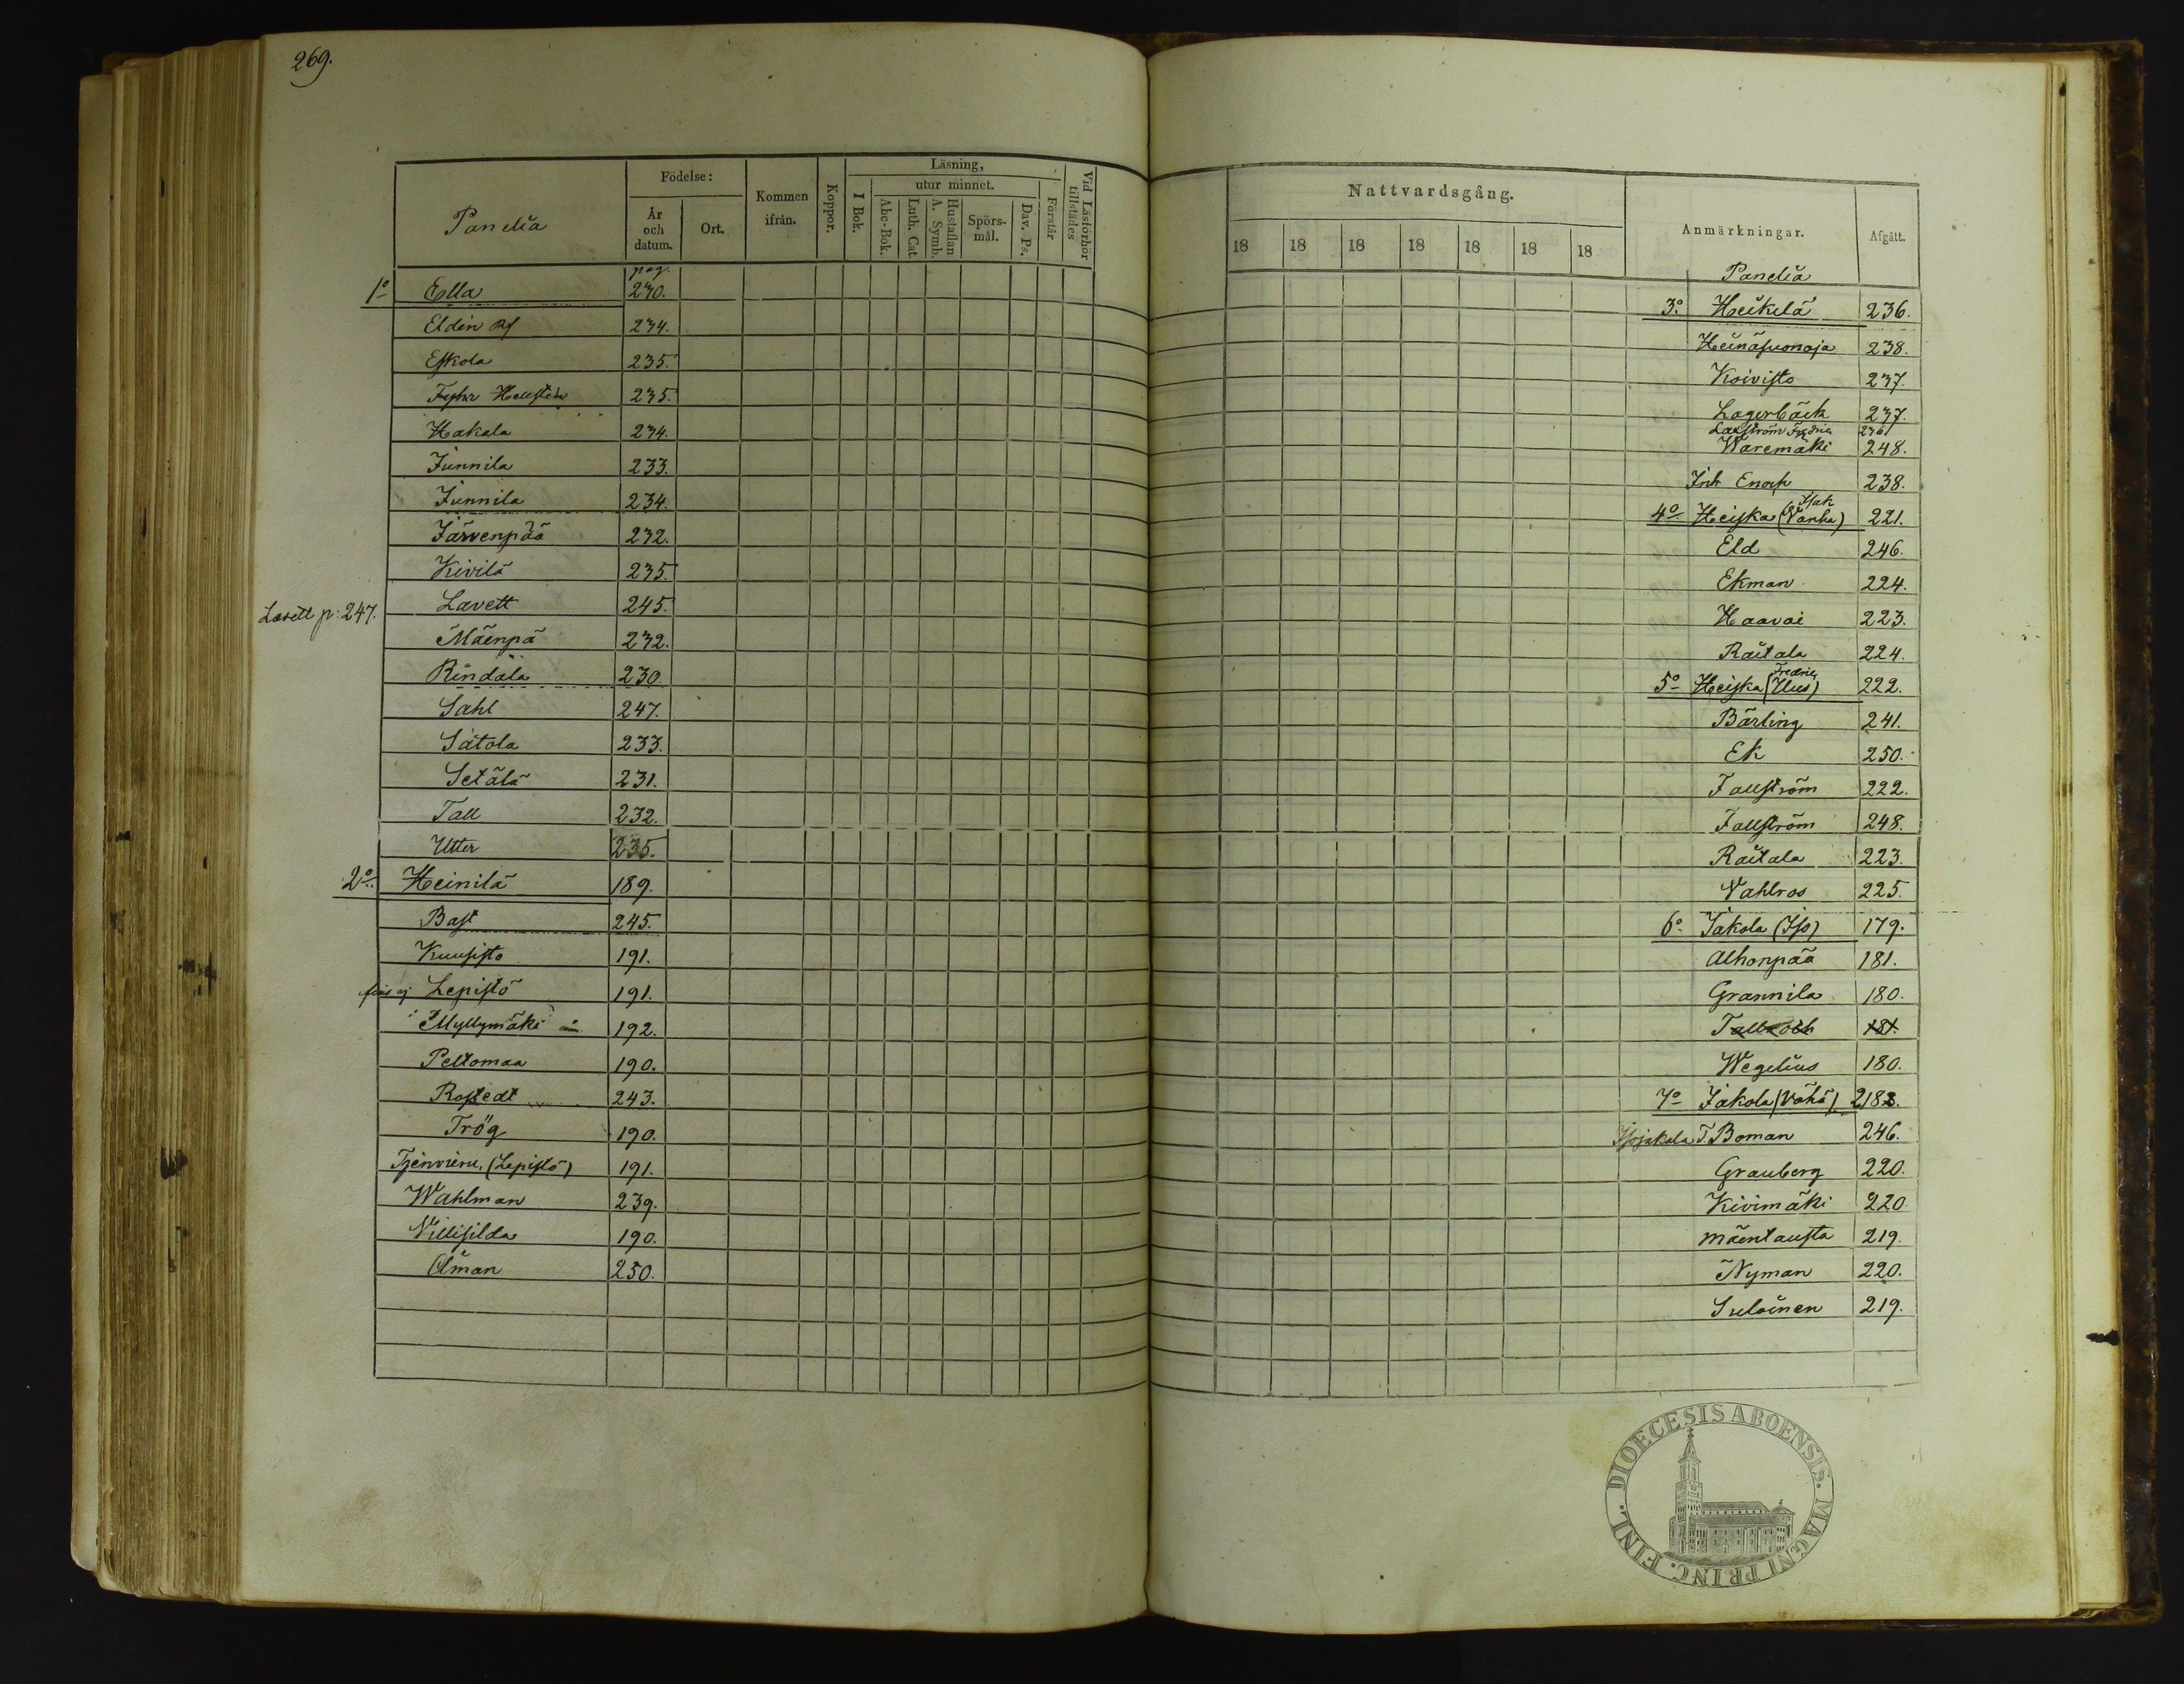 269.
Panelia
Födelse:
År och datum.
Ort.
Kommen ifrån.
Koppor.
Läsning,
I Bok.
utur minnet.
Abc-Bok.
Luth. Cat.
Hustaflan A. Symb.
Spörs-mål.
Dav. Ps.
Förstår
Vid Läsförhör tillstädes
pag.
1o Ella 230.
Eldén 234.
Eskola 235.
Fyhr 235.
Hakala 234.
Junnila 233.
Junnila 234.
Järvenpää 232.
Kivilä 235.
Lavett p: 247. Lavett 245.
Mäenpä 232.
Rindala 230.
Sahl 247.
Sätola 233.
Setälä 231.
Tall 232.
Utter 235.
2o Heinilä 189.
Bast 245.
Kuusisto 191.
Lepistö 191.
Myllymäki 192.
Peltomaa 190.
Rostedt 243.
Trög 190.
(Lepistö) 191.
Wahlman 239.
Villisilda 190.
Öman 250.
Nattvardsgång.
18 18 18 18 18 18 18
Anmärkningar.
Afgått.
Panelia
3o Heikilä 236.
Heinäsuonoja 238.
Koivisto 237.
Lagerbäck 237.
Laxström Fredric 236
Waremäki 248.
Inh Enoch 238.
Isak
4o Heiska (Vanha) 221.
Eld 246.
Ekman 224.
Haavoi 223.
Raitala 224.
Fredric
5o Heiska (Uus) 222.
Bärling 241.
Ek 250.
Fallström 222.
Fallström 248.
Raitala 223.
Vahlros 225.
6o Jakola (Iso) 179.
Alhonpää 181.
Grannila 180.
181.
Wegelius 180.
7o Jakola (Vähä) 218.
Isojakola T. Boman 246.
Grauberg 220.
Kivimäki 220.
Mäentausta 219.
Nyman 220.
Suloinen 219.
DIOECESIS ABOENSIS. MAGNI PRINC. FINL.